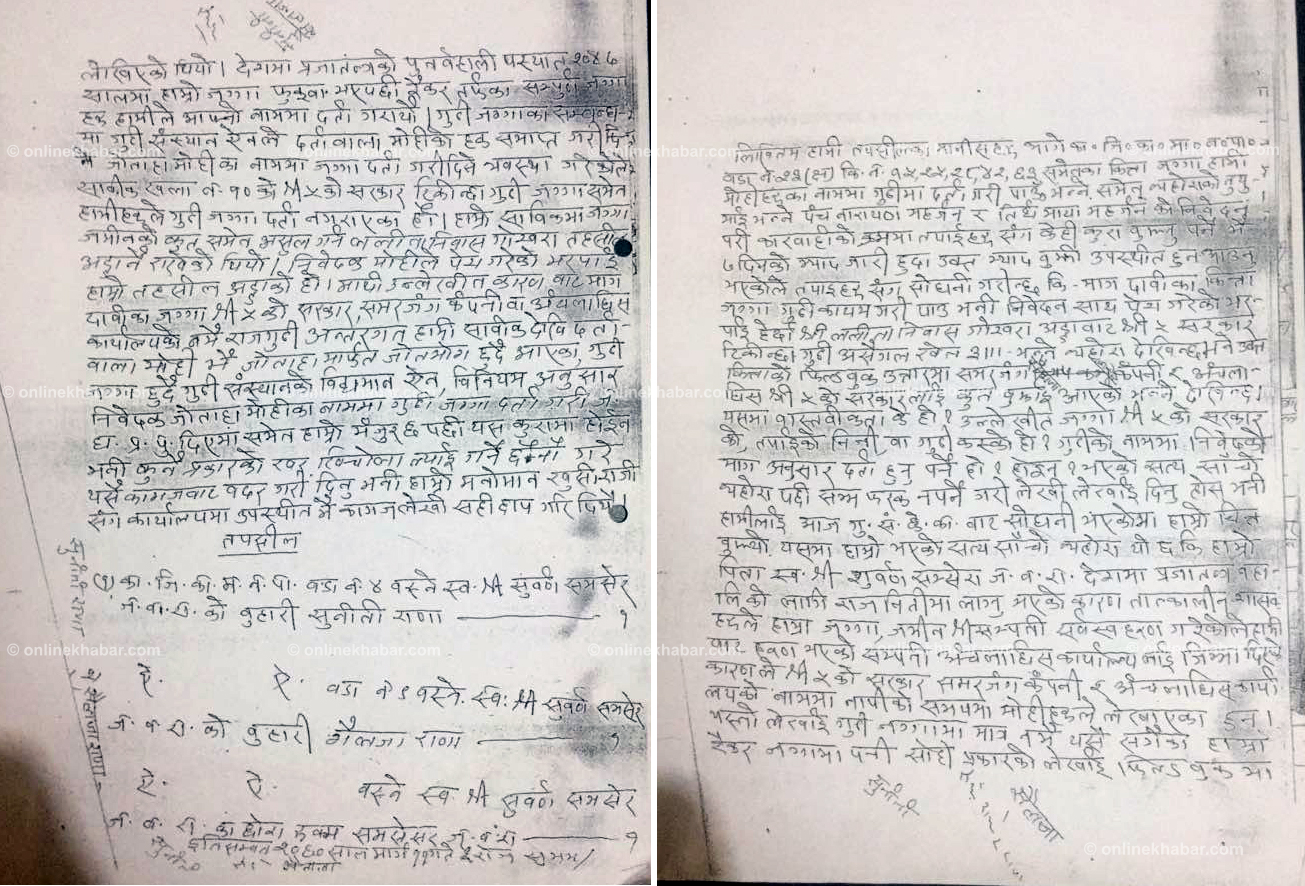 लेखिएको थियो। देशमा प्रजातन्त्रको पुनर्वहाली पस्चात २०४७
सालमा हाम्रो जग्गा फुकुवा भएपछी रैकर तर्फका सम्पुर्ण जग्गा
हरु हामीले आफ्नो नाममा दर्ता गरायौं। गुठी जग्गाका सम्वन्ध
मा गुठी संस्थान ऐनले दर्तावाला मोहीको हक समाप्त गरी
जोताहा मोहीका नाममा जग्गा दर्ता गरीदिने व्यवस्था गरे
साबीक नं. १० को श्री ५ को सरकार टिकीन्छा गुठी जग्गा समेत
हामीहरुले गुठी जग्गा दर्ता नगराएका हौं। हाम्रो साविकमा जग्गा
जमीनको कुत समेत असुल गर्न ललीतानिवास गोश्वरा तहसील
अड्डाने राखेको थियो। निवेदक मोहीले पेश गरेको भरपाई
हाम्रो तहसील अड्डाको हो। माथी उल्लेखीत कारण वाट माग
दावीका जग्गा श्री ५ को सरकार समरजंग कंपनी वा अंचलाधिस
कार्यालयको नभै राजगुठी अन्तरगत् हामी सावीक देखि दर्ता
वाला मोही भै जोताहा मार्फत जोतभोग हुदै आएका गुठी
जग्गा हुदै गुठी संस्थानको विद्यमान ऐन, विनियम अनुसार
निवेदक जोताहा मोहीका नाममा गुठी जग्गा दर्ता गरी ज.
ध. प्र. पु. दिएमा समेत हाम्रो मंजुर छ पछी यस कुरामा होईन
भनी कुनै प्रकारको खिचोला ल्याई गर्ने छैनौं गरे
यसै कागजवाट वदर गरी दिनु भनी हाम्रो मनोमान खुसी राजी
संग कार्यालयमा उपस्थीत भै कागज लेखी सही छाप गरि दियौं।
तपसील
(१) का. जि. का. म. न. पा. वडा नं ४ वस्ने स्व. श्री सुवर्ण समसेर
ज. व. रा. को वुहारी सुनीती राणा — १
ऐ. ऐ. वडा नं ९ वस्ने स्व. श्री सुवर्ण समसेर
ज. व. रा. को वुहारी शैलजा राणा — १
ऐ. ऐ. वस्ने स्व. श्री सुवर्ण समसेर
ज. व. रा. का छोरा रुक्म समसेर ज. व. रा — १
इति सम्वत २०६० साल मार्ग गते रोज शुभम्
सुनीती राणा
शैलजा राणा
लिखितम हामी तपसीलका मानीसहरु आगे का. जि. का. म. न. पा.
वडा नं. कि. नं. समेतका किता जग्गा हामी
मोहीहरुका नाममा गुठीमा दर्ता गरी पाउँ भन्ने समेत व्यहोराको
भन्ने पंच नारायण महर्जन र तिर्थ माया महर्जन को निवेदन
परी कारवाहीको क्रममा तपाईहरु संग केही कुरा वुझ्नु पर्ने भै
७ दिनको म्याद जारी हुदा उक्त म्याद वुझी उपस्थीत हुन आउनु
भएकोले तपाईहरु संग सोधनी गरीन्छ कि- माग दावीका किता
जग्गा गुठी कायम गरी पाउ भनी निवेदन साथ पेश गरेको भर-
पाई हेर्दा श्री ललीता निवास गोश्वरा अड्डावाट श्री ५ सरकार
टिकीन्छा गुठी खेत भन्ने व्यहोरा देखिन्छ भने उक्त
किताको फिल्डवुक उत्तारमा समरजंग कंपनी र अंचला-
धिस श्री ५ को सरकारलाई कुत वुझाई आएको भन्ने देखिन्छ।
यसमा वास्तवीकता के हो? उल्लेखीत जग्गा श्री ५ को सरकार
को, तपाईको निजी वा गुठी कस्को हो? गुठीको नाममा निवेदकको
माग अनुसार दर्ता हुनु पर्ने हो? होईन? भएको सत्य साँचो
व्यहोरा पछी सम्म फरक नपर्ने गरी लेखी लेखाई दिनु होस् भनी
हामीलाई आज गु. सं. का. वाट सोधनी भएकोमा हाम्रो चित्त
वुझ्यो यसमा हाम्रो भएको सत्य साँचो व्यहोरा यो छ कि हाम्रो
पिता स्व. श्री सुवर्ण समसेर ज. व. रा. देशमा प्रजातन्त्र वहा-
लि को लागि राजनितीमा लाग्नु भएको कारण तात्कालीन शासक
हरुले हाम्रा जग्गा जमीन श्रीसम्पती सर्वस्व हरण गरेकोले हाम्रो
हरण भएको सम्पती अंचलाधिस कार्यालय लाई जिम्मा दिएको
कारणले श्री ५ को सरकार समरजंग कंपनी र अंचलाधिस कार्या
लयको नाममा नापीका समयमा मोहीहरुले लेखाएका हुन्।
यस्तो लेखाई गुठी जग्गामा मात्र नभै यसै सगैको हाम्रा
रैकर जग्गामा पनी सोही प्रकारको लेखाई फिल्ड वुक मा
सुनीती
onlinekhabar.com
onlinekhabar.com
onlinekhabar.com
onlinekhabar.com
onlinekhabar.com
onlinekhabar.com
onlinekhabar.com
onlinekhabar.com
onlinekhabar.com
onlinekhabar.com